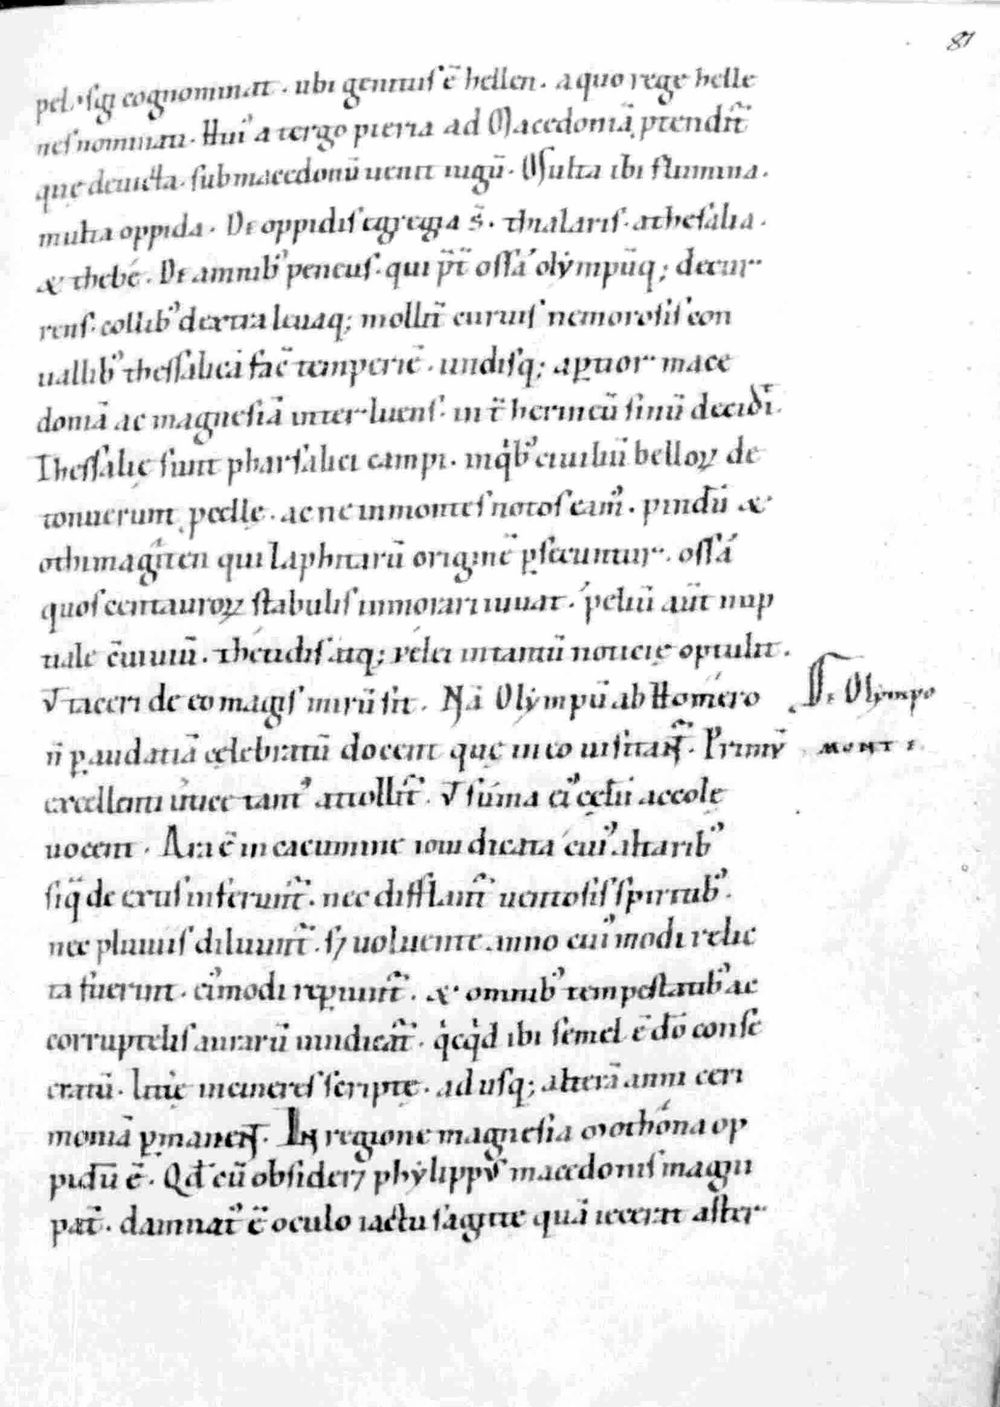 81
pel.sgi cognominat. ubi genitus ē hellen. a quo rege helle
nes nominati. Hui᾽ a tergo pieria ad Macedoniā ptendit̄
quę deuicta. sub macedonū uenit iugū. Multa ibi flumina.
multa oppida. De oppidis egregia s̄. thalaris. athesalia.
& thebe. De amnib᾽ peneus. qui p̄t̄ ossā olẏmpūq; decur
rens. collib᾽ dextra leuaq; mollit̄ curuis nemorosis con
uallib᾽ thessalicā fac̄ temperiē. undisq; aptior mace
doniā ac magnesiā inter luens. in t̄hermeū sinū decidit.
Thessalię sunt pharsalici campi. inq̇b᾽ ciuiliū belloꝝ de
tonuerunt pcellę. ac ne in montes notos eam᾽. pindū &
othrimagn̄ten qui laphitarū originē psecuntur. ossā
quos centauroꝝ stabulis inmorari iuuat. peliū aūt nup
tiale c̄uiuiū. thetidis atq; pelei intantū noticię optulit.
Vt taceri de eo magis mirū sit. Nā Olẏmpū ab Homero
De Olẏmpo
n̄ p audatiā celebratū docent que in eo uisitant̄. Primū
MONTE.
excellenti uertice tant᾽ attollit̄. Vt sūma ei᾽ cęlū accolę
uocent. Ara ē in cacumine ioui dicata cui᾽ altarib᾽
siq̄ de extis inferunt̄. nec difflant̄ uentosis spiritib᾽.
nec pluuiis diluunt̄. s; uoluente anno cui᾽modi relic
ta fuerint. ei᾽modi repiunt̄. & omnib᾽ tempestatib᾽ ac
corruptelis aurarū uindicat̄. q̇cq̇d ibi semel ē dō conse
cratū. litterę in cineres scriptę. ad usq; alterā anni ceri
moniā pmanent. In regione magnesia mothona op
pidū ē. Qd̄ cū obsideret phẏlippus macedonis magni
pat̄. damnat᾽ ē oculo iactu sagitte quā iecerat aster